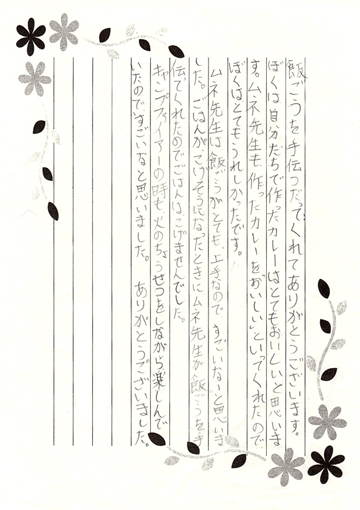 飯ごうを手伝つだってくれてありがとうございます。
ぼくは自分たちで作ったカレーはとてもおいしいと思いま
す。ムネ先生も、作ったカレーを「おいしい」といってくれたので
ぼくはとてもうれしかったです。
ムネ先生は、飯ごうがとても、上手なので すごいなーと思いま
した。ごはんが、こげそうになったときにムネ先生が飯ごうを手
伝てくれたのでごはんは、こげませんでした。
キャンプファイアーの時も、火のちょうせつをしながら楽しんで
いたのですごいなーと思いました。 ありがとうございました。